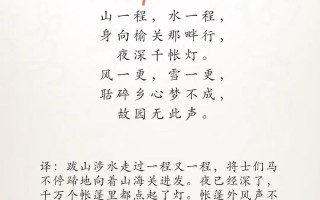 山一程，水一程，
身向榆关那畔行，
夜深千帐灯。
风一更，雪一更，
聒碎乡心梦不成，
故园无此声。
译：跋山涉水走过一程又一程，将士们马
不停蹄地向着山海关进发。夜已经深了，
千万个帐篷里都点起了灯。帐篷外风声不